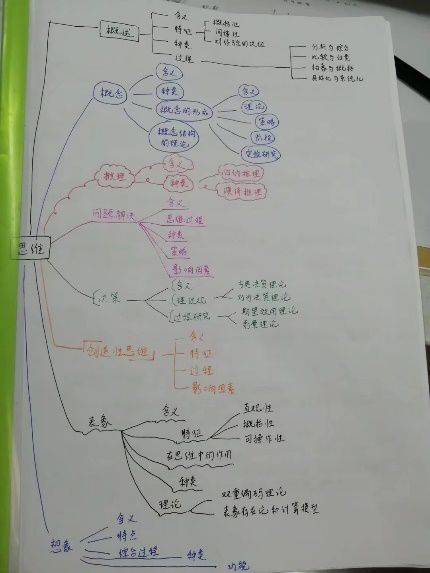 思维
概述
含义
特征
概括性
间接性
对经验的改组
种类
过程
分析与综合
比较与分类
抽象与概括
具体化与系统化
概念
含义
种类
概念的形成
含义
理论
策略
阶段
实验研究
概念结构的理论
推理
含义
种类
归纳推理
演绎推理
问题解决
含义
思维过程
种类
策略
影响因素
决策
含义
理论
过程研究
期望效用理论
前景理论
创造性思维
含义
特征
过程
影响因素
表象
含义
特征
直观性
概括性
可操作性
在思维中的作用
种类
理论
双重编码理论
表象存在论和计算模型
想象
含义
特点
综合过程
种类
功能